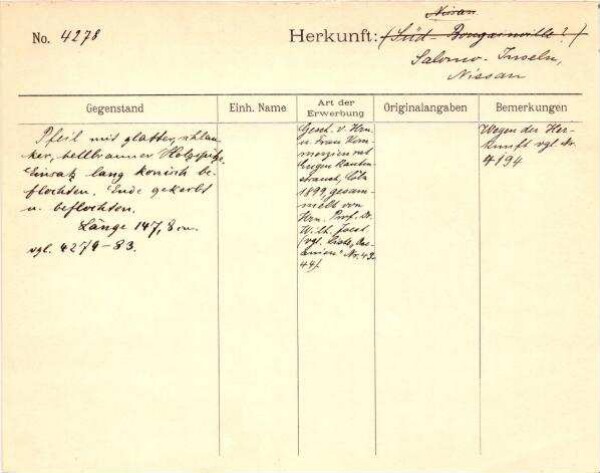 Nissan
No. 4278
Herkunft: (Süd-Bougainville?)
Salomo-Inseln,
Nissan
Gegenstand
Einh. Name
Art der Erwerbung
Originalangaben
Bemerkungen
Pfeil mit glatter, schlan-
ker, hellbrauner Holzspitze,
Einsatz lang konisch be-
flochten. Ende gekerbt
u. beflochten.
Länge 147,8 cm
vgl. 4279-83.
Gesch. v. Hrn.
u. Frau Kom-
merzienrat
Eugen Rauten-
strauch, Cöln
1899, gesam-
melt von
Hrn. Prof. Dr.
Wilh. Joest.
(vgl. Liste, Oze-
anien" Nr. 43-
44).
Wegen der Her-
kunft vgl. Nr.
4194